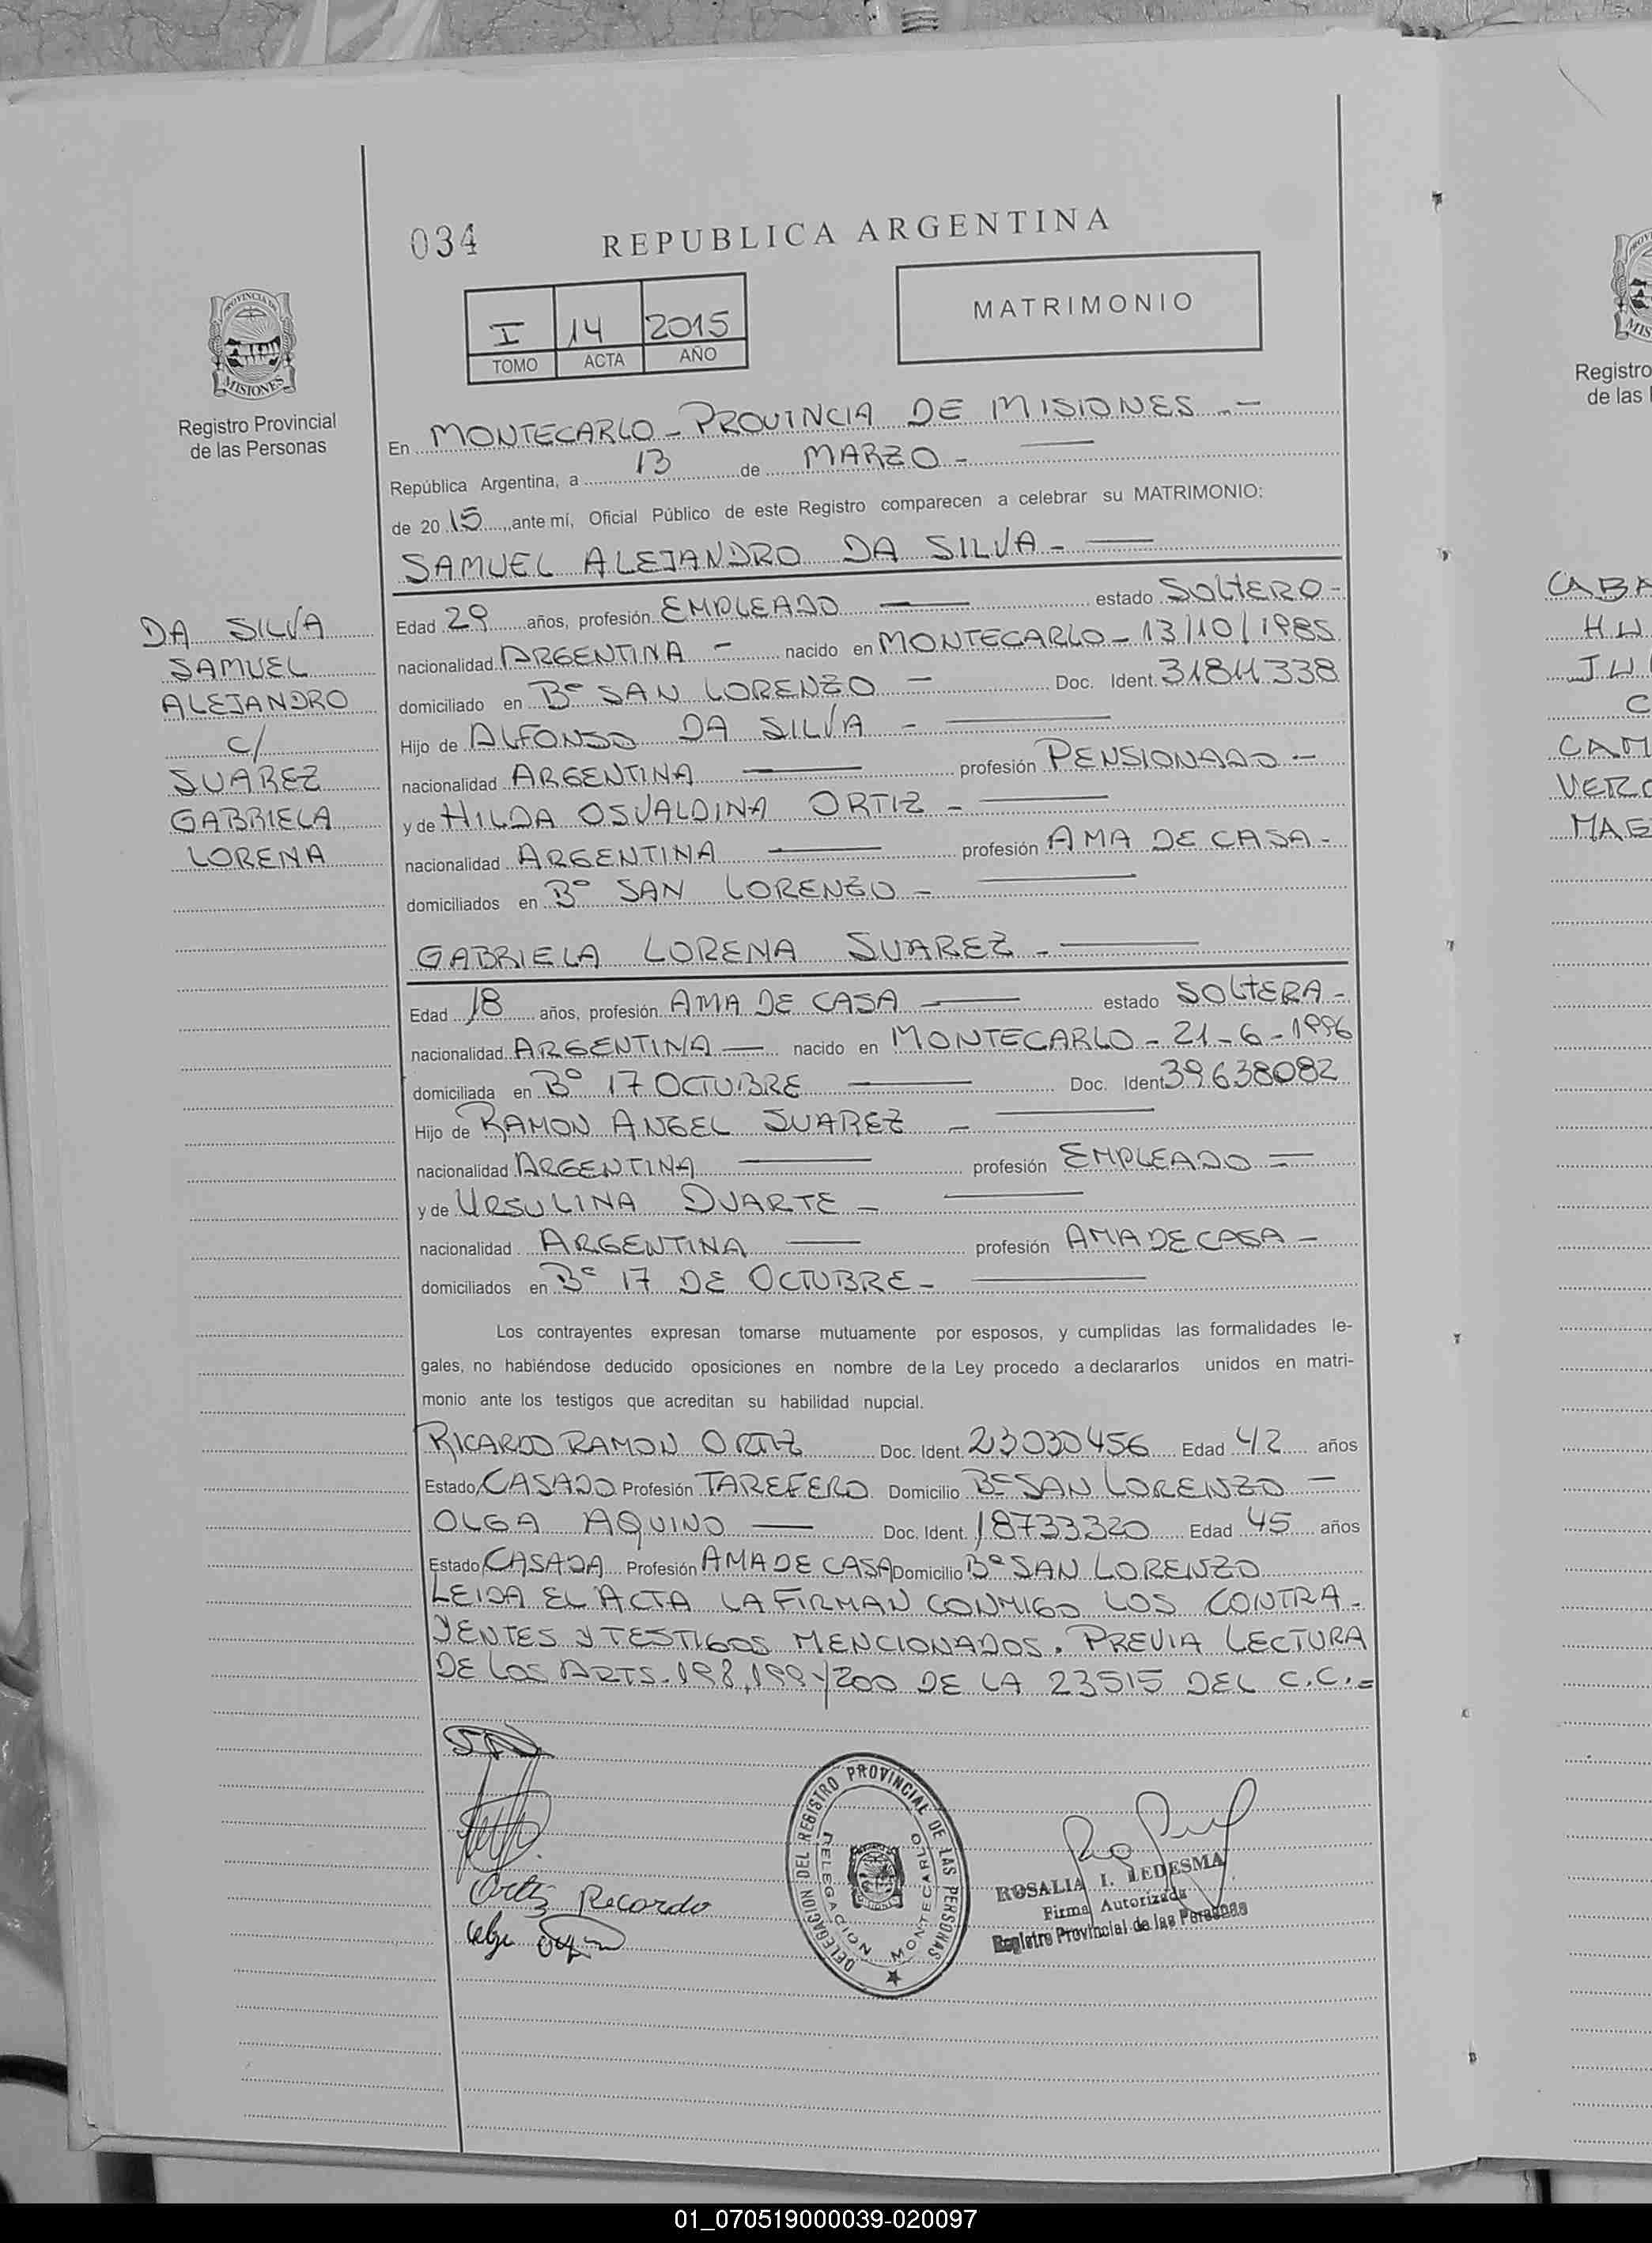 034
REPUBLICA ARGENTINA
I 14 2015
TOMO ACTA AÑO
MATRIMONIO
PROVINCIA DE
MISIONES
Registro Provincial
de las Personas
En MONTECARLO - PROVINCIA DE MISIONES -
República Argentina, a 13 de MARZO -
de 2015, ante mí, Oficial Público de este Registro comparecen a celebrar su MATRIMONIO:
SAMUEL ALEJANDRO DA SILVA -
DA SILVA
SAMUEL
ALEJANDRO
c/
SUAREZ
GABRIELA
LORENA
Edad 29 años, profesión EMPLEADO estado SOLTERO -
nacionalidad ARGENTINA - nacido en MONTECARLO - 13/10/1985
domiciliado en B° SAN LORENZO - Doc. Ident. 31.811.338
Hijo de ALFONSO DA SILVA -
nacionalidad ARGENTINA profesión PENSIONADO -
y de HILDA OSVALDINA ORTIZ -
nacionalidad ARGENTINA profesión AMA DE CASA -
domiciliados en B° SAN LORENZO -
GABRIELA LORENA SUAREZ -
Edad 18 años, profesión AMA DE CASA estado SOLTERA -
nacionalidad ARGENTINA nacido en MONTECARLO - 21-6-1996
domiciliada en B° 17 OCTUBRE Doc. Ident 39.638082
Hijo de RAMON ANGEL SUAREZ -
nacionalidad ARGENTINA profesión EMPLEADO =
y de URSULINA DUARTE -
nacionalidad ARGENTINA profesión AMA DE CASA -
domiciliados en B° 17 DE OCTUBRE -
Los contrayentes expresan tomarse mutuamente por esposos, y cumplidas las formalidades le-
gales, no habiéndose deducido oposiciones en nombre de la Ley procedo a declararlos unidos en matri-
monio ante los testigos que acreditan su habilidad nupcial.
RICARDO RAMON ORTIZ Doc. Ident. 23030456 Edad 42 años
Estado CASADO Profesión TAREFERO Domicilio B° SAN LORENZO -
OLGA AQUINO Doc. Ident. 18733320 Edad 45 años
Estado CASADA Profesión AMA DE CASA Domicilio B° SAN LORENZO
LEIDA EL ACTA LA FIRMAN CONMIGO LOS CONTRA-
YENTES Y TESTIGOS MENCIONADOS. PREVIA LECTURA
DE LOS ARTS. 198, 199 y 200 DE LA 23515 DEL C.C. =
Ortiz Recordo
DELEGACION DEL REGISTRO PROVINCIAL DE LAS PERSONAS
DELEGACION MONTECARLO
ROSALIA I. LEDESMA
Firma Autorizada
Registro Provincial de las Personas
Registro
de las
CABA
CAM
VERO
MAG
01_070519000039-020097